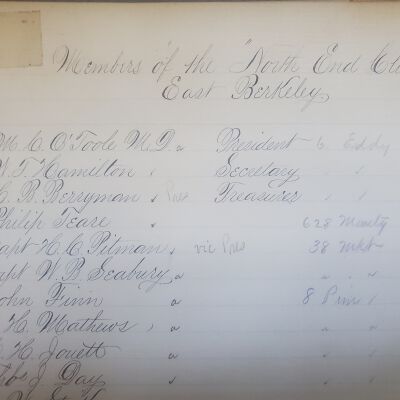 Members of the "North End Clu
East Berkeley
M. C. O'Toole M.D. President 6 Eddy
W. T. Hamilton Secretary
C. B. Berryman Pres Treasurer
Philip Teare 628
Capt H. C. Pitman vice Pres 38 Mkt
Capt W. B. Seabury
John Finn 8 Pine
H. Mathews
H. Jouett
J. Day